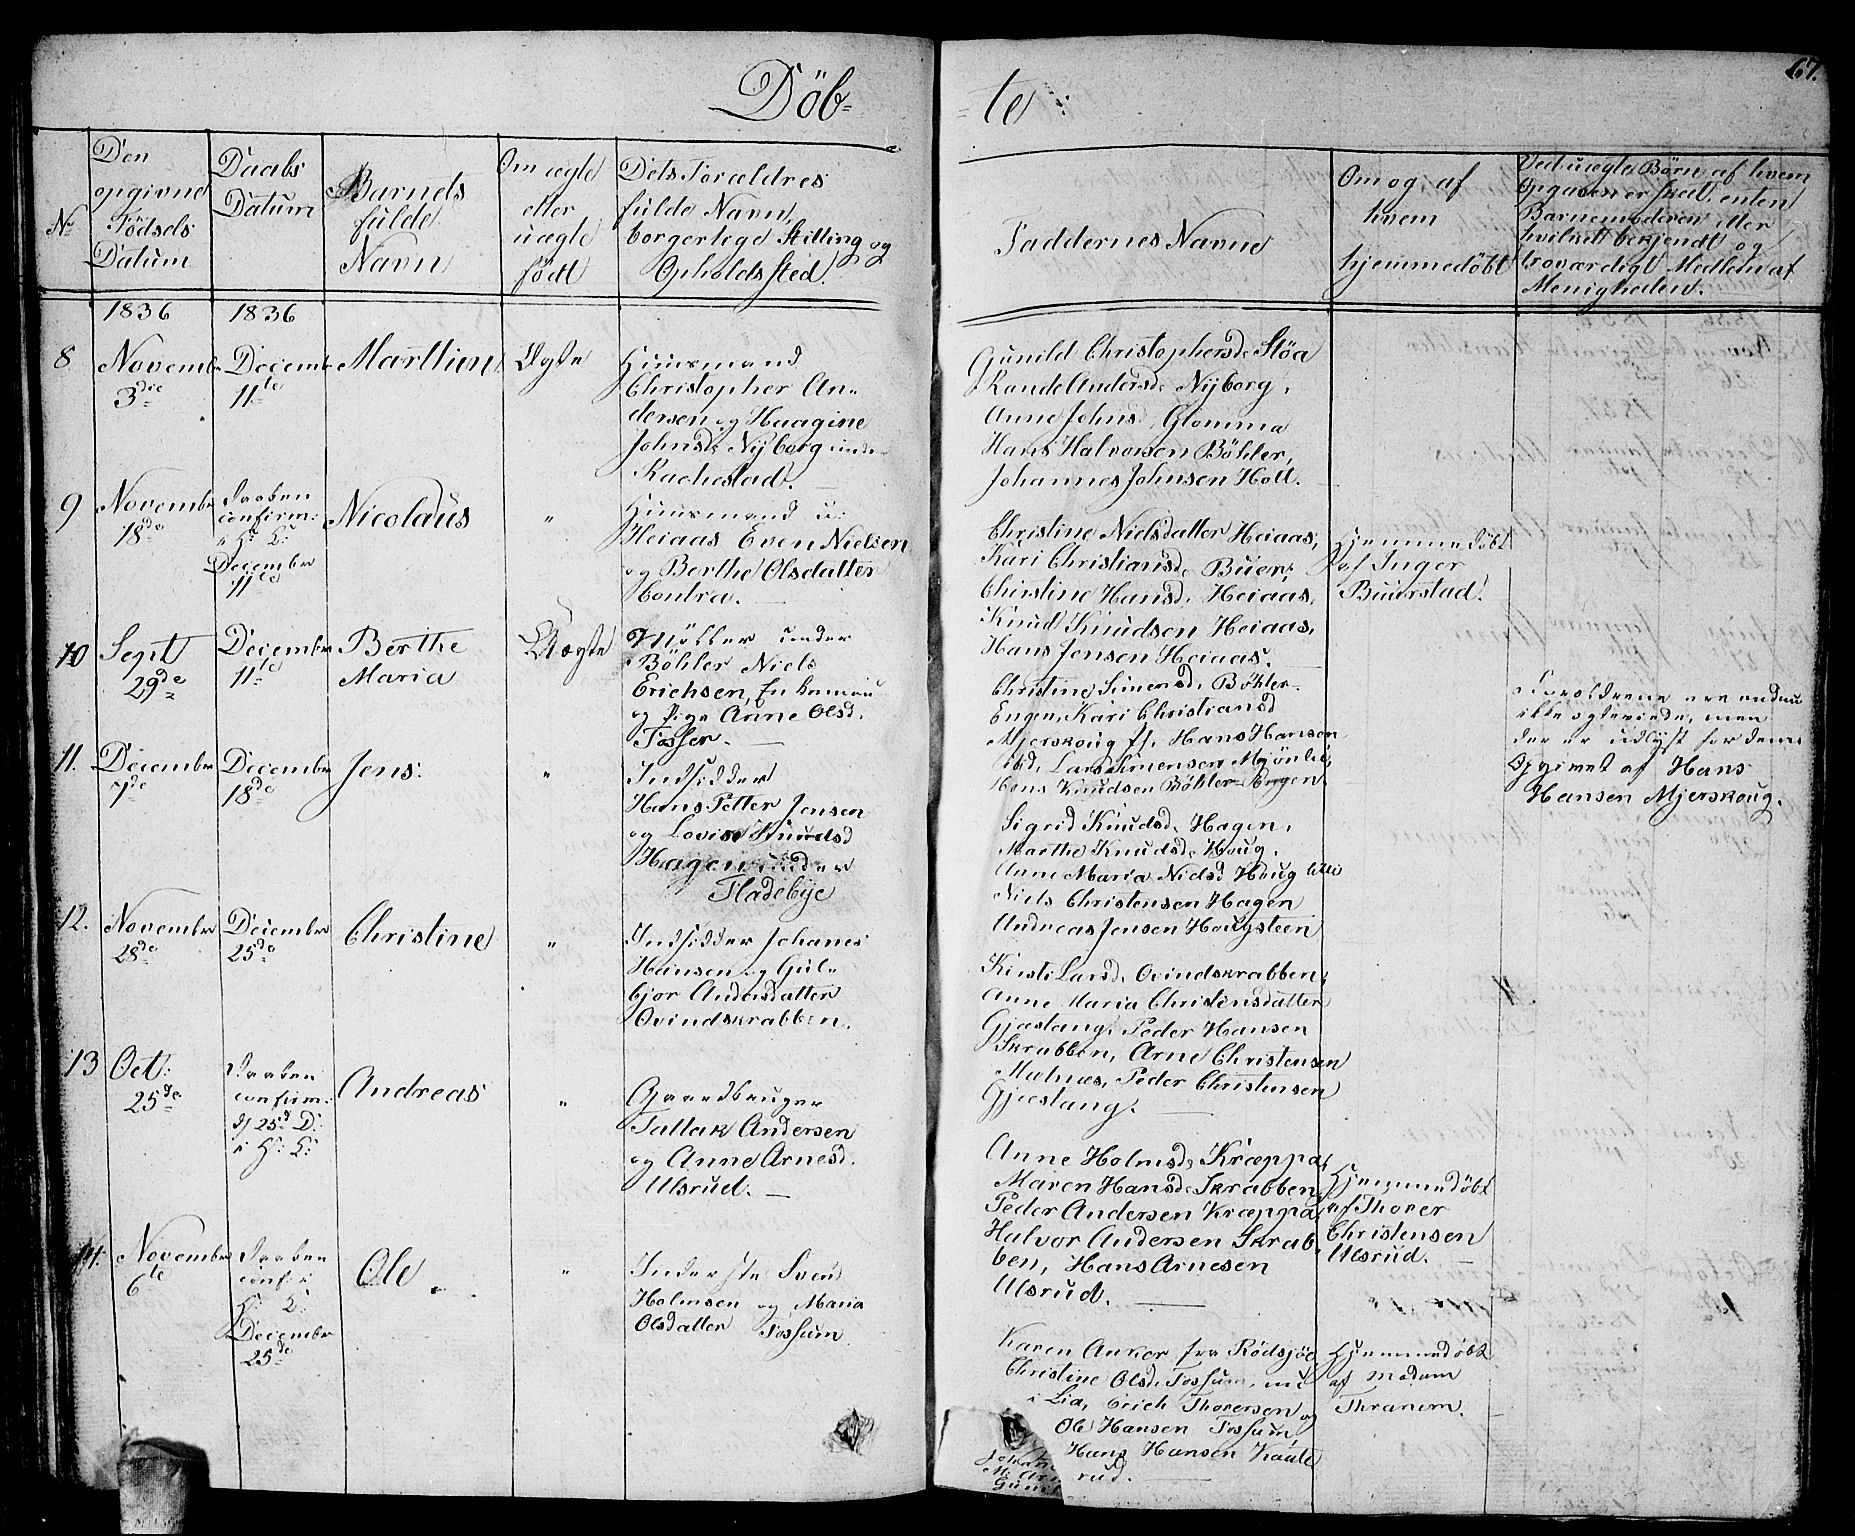 67.
Döb-
-te
No
Den
opgivne
Fødsels
Datum
Daabs
Datum
Barnets
fulde
Navn
Om ægte
eller
uægte
født
Dets Forældres
fulde Navn,
borgerlige Stilling og
Opholdssted.
Faddernes Navne
Om og af
hvem
hjemmedøbt
Ved uægte Børn af hvem
Opgaven er skeet, enten
Barnemoderen eller
hvilket bekjendt og
troværdigt Medlem af
Menigheden.
1836
1836
8
Novembr
3die
Decemb
11te
Marthea
Ægte
Huusmand
Christopher An-
dersen og Haagine
Johnsd. Nyborg und.
Rachestad.
Gunild Christophersd. Stöa
Rande Andersd. Nyborg,
Anne Johns. Glomma
Hans Halvorsen Böhler,
Johannes Johnsen Holt.
9
Novembr
18de
Daaben
confirm:
i H: K:
Decembr
11te
Nicolaus
"
Huusmand u:
Heiaas Even Nielsen
og Berthe Olsdatter
Contra.
Christine Nielsdatter Heiaas,
Kari Christiansd. Buer,
Christine Hansd. Heiaas,
Knud Knudsen Heiaas,
Hans Jensen Heiaas.
Hjemmedöbt
af Inger
Buerstad.
10
Sept
29de
Decembr
11te
Berthe
Maria
Uægte
Möller under
Böhler Niels
Erichsen, Enkeman
og Pige Anne Olsd.
Fosser.
Christine Simensd. Böhler-
Engen, Kari Christiansd
Mjerskoug ff. Hans Hansen
ibid, Lars Simensen Mjönlie,
Hans Knudsen Böhler-Engen.
Foreldrene ere endnu
ikke egteviede, men
der er udlyst for dem.
Opgivet af Hans
Hansen Mjerskoug.
11.
Decembr
7de
Decembr
18de
Jens.
"
Indsidder
Hans Petter Jensen
og Lovise Knudsd
Hagen under
Fladebye
Sigrid Knudsd. Hagen,
Marthe Knudsd. Houg,
Anne Maria Nielsd Houg lille
Niels Christensen Hagen
Andreas Jensen Hougsteen
12.
Novembr
28de
Decembr
25de
Christine
"
Indsidder Johanes
Hansen og Gul-
bjor Andersdatter
Ovindskrabben.
Kirsti Larsd. Ovindskrabben,
Anne Maria Christensdatter
Gjæstang, Peder Hansen
Skrabben, Arne Christensen
Mælnæs, Peder Christensen
Gjæstang.
13
Oct:
25de
Daaben
confirm:
d. 25d D:
i H: K:
Andreas
"
Gaardbruger
Tallak Andersen
og Anne Arnesd.
Ulsrud.
Anne Holmsd. Kræppa,
Maren Hansd. Skrabben,
Peder Andersen Kræppa,
Halvor Andersen Skrab-
ben, Hans Arnesen
Ulsrud.
Hjemmedöbt
af Thorer
Christensen
Ulsrud.
14.
Novembr
6te
Daaben
conf: i
H: K:
Decembr
25de
Ole
"
Inderste Svend
Holmsen og Maria
Olsdatter Fossum
Karen Anker fra Rödsjöe,
Christine Olsd. Fossum,
i Lia, Erich Thorersen og
Ole Hansen Fossum,
Hans Hansen Kaate
rud.
Hjemmedöbt
af Madam
Thranem.